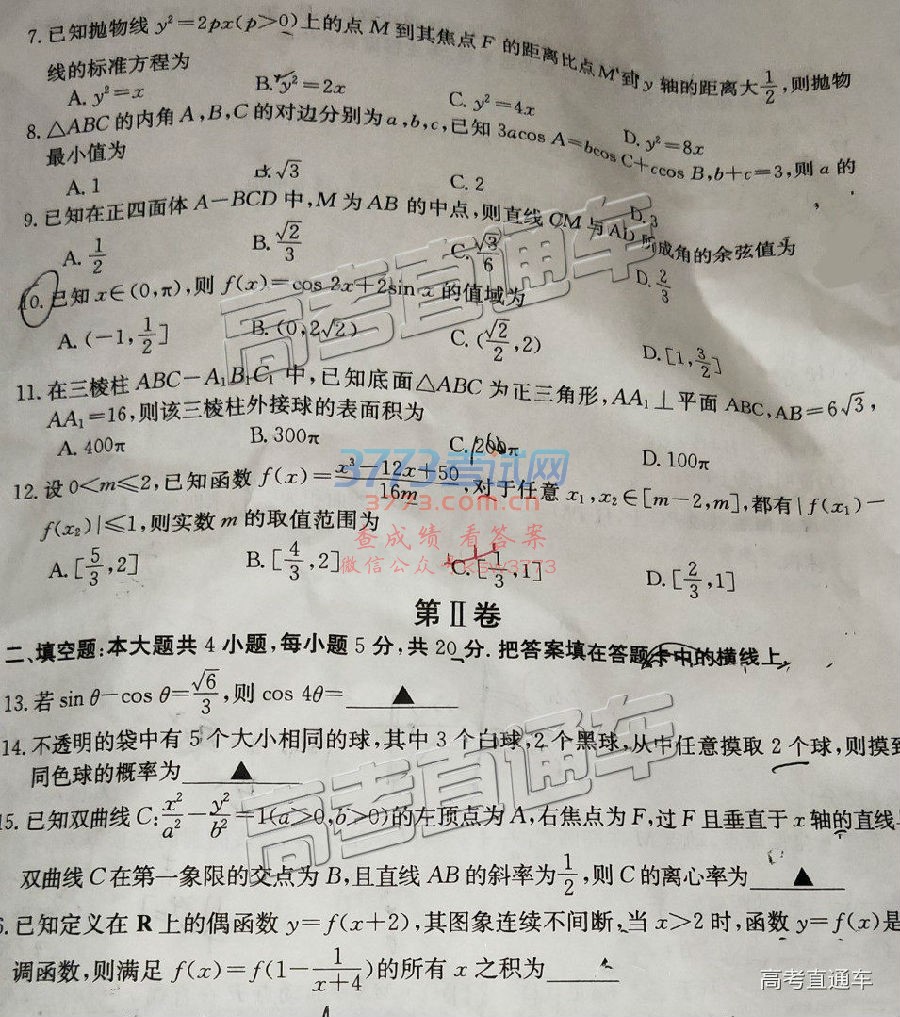 7.已知抛物线 y²=2px(p>0)上的点 M 到其焦点 F 的距离比点M到 y 轴的距离大1/2,则抛物
线的标准方程为
A. y²=x B. y²=2x C. y²=4x D. y²=8x
8.△ABC 的内角 A,B,C 的对边分别为 a,b,c,已知 3acos A=bcos C+ccos B,b+c=3,则 a 的
最小值为
A. 1 √3 C. 2 D. 3
9.已知在正四面体 A-BCD 中,M 为 AB 的中点,则直线 CM 与 AD 所成角的余弦值为
A. 1/2 B. √2/3 C. √3/6 D. 2/3
10.已知 x∈(0,π),则 f(x)=cos 2x+2sin x 的值域为
A. (-1,1/2] B. (0,2√2) C. (√2/2,2) D. [1,3/2]
11.在三棱柱 ABC-A₁B₁C₁ 中,已知底面△ABC 为正三角形,AA₁⊥平面 ABC,AB=6√3,
AA₁=16,则该三棱柱外接球的表面积为
A. 400π B. 300π C. 200π D. 100π
12.设 0<m≤2,已知函数 f(x)=(x³-12x+50)/(16m),对于任意 x₁,x₂∈[m-2,m],都有|f(x₁)-
f(x₂)|≤1,则实数 m 的取值范围为
A. [5/3,2] B. [4/3,2] C. [1/3,1] D. [2/3,1]
第Ⅱ卷
二、填空题:本大题共 4 小题,每小题 5 分,共 20 分.把答案填在答题卡中的横线上.
13.若 sin θ-cos θ=√6/3,则 cos 4θ=▲
14.不透明的袋中有 5 个大小相同的球,其中 3 个白球,2 个黑球,从中任意摸取 2 个球,则摸到
同色球的概率为▲
15.已知双曲线 C:x²/a²-y²/b²=1(a>0,b>0)的左顶点为 A,右焦点为 F,过 F 且垂直于 x 轴的直线与
双曲线 C 在第一象限的交点为 B,且直线 AB 的斜率为1/2,则 C 的离心率为▲
6.已知定义在 R 上的偶函数 y=f(x+2),其图象连续不间断,当 x>2 时,函数 y=f(x)是
调函数,则满足 f(x)=f(1-1/(x+4))的所有 x 之积为▲
高考直通车
3773考试网
3773.com.cn
查成绩 看答案
高考直通车
高考直通车